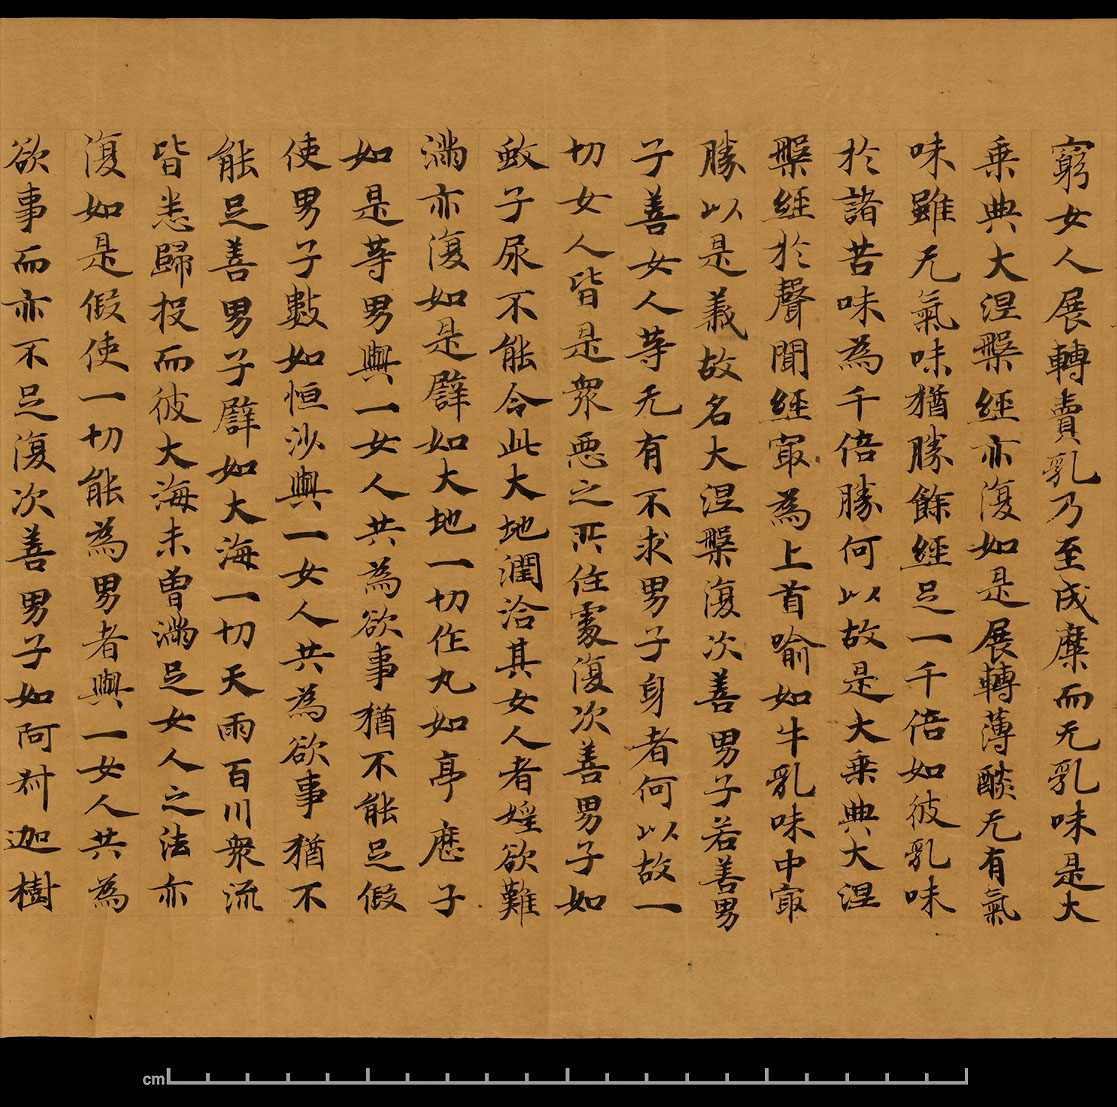 窮女人展轉賣乳乃至成糜而无乳味是大
乘典大涅槃經亦復如是展轉薄醶无有氣
味雖无氣味猶勝餘經足一千倍如彼乳味
於諸苦味為千倍勝何以故是大乘典大涅
槃經於聲聞經冣為上首喻如牛乳味中冣
勝以是義故名大涅槃復次善男子若善男
子善女人等无有不求男子身者何以故一
切女人皆是衆惡之所住處復次善男子如
蚊子尿不能令此大地潤洽其女人者婬欲難
滿亦復如是譬如大地一切作丸如亭歷子
如是等男與一女人共為欲事猶不能足假
使男子數如恒沙與一女人共為欲事猶不
能足善男子譬如大海一切天雨百川衆流
皆悉歸投而彼大海未曾滿足女人之法亦
復如是假使一切能為男者與一女人共為
欲事而亦不足復次善男子如阿叔迦樹
cm